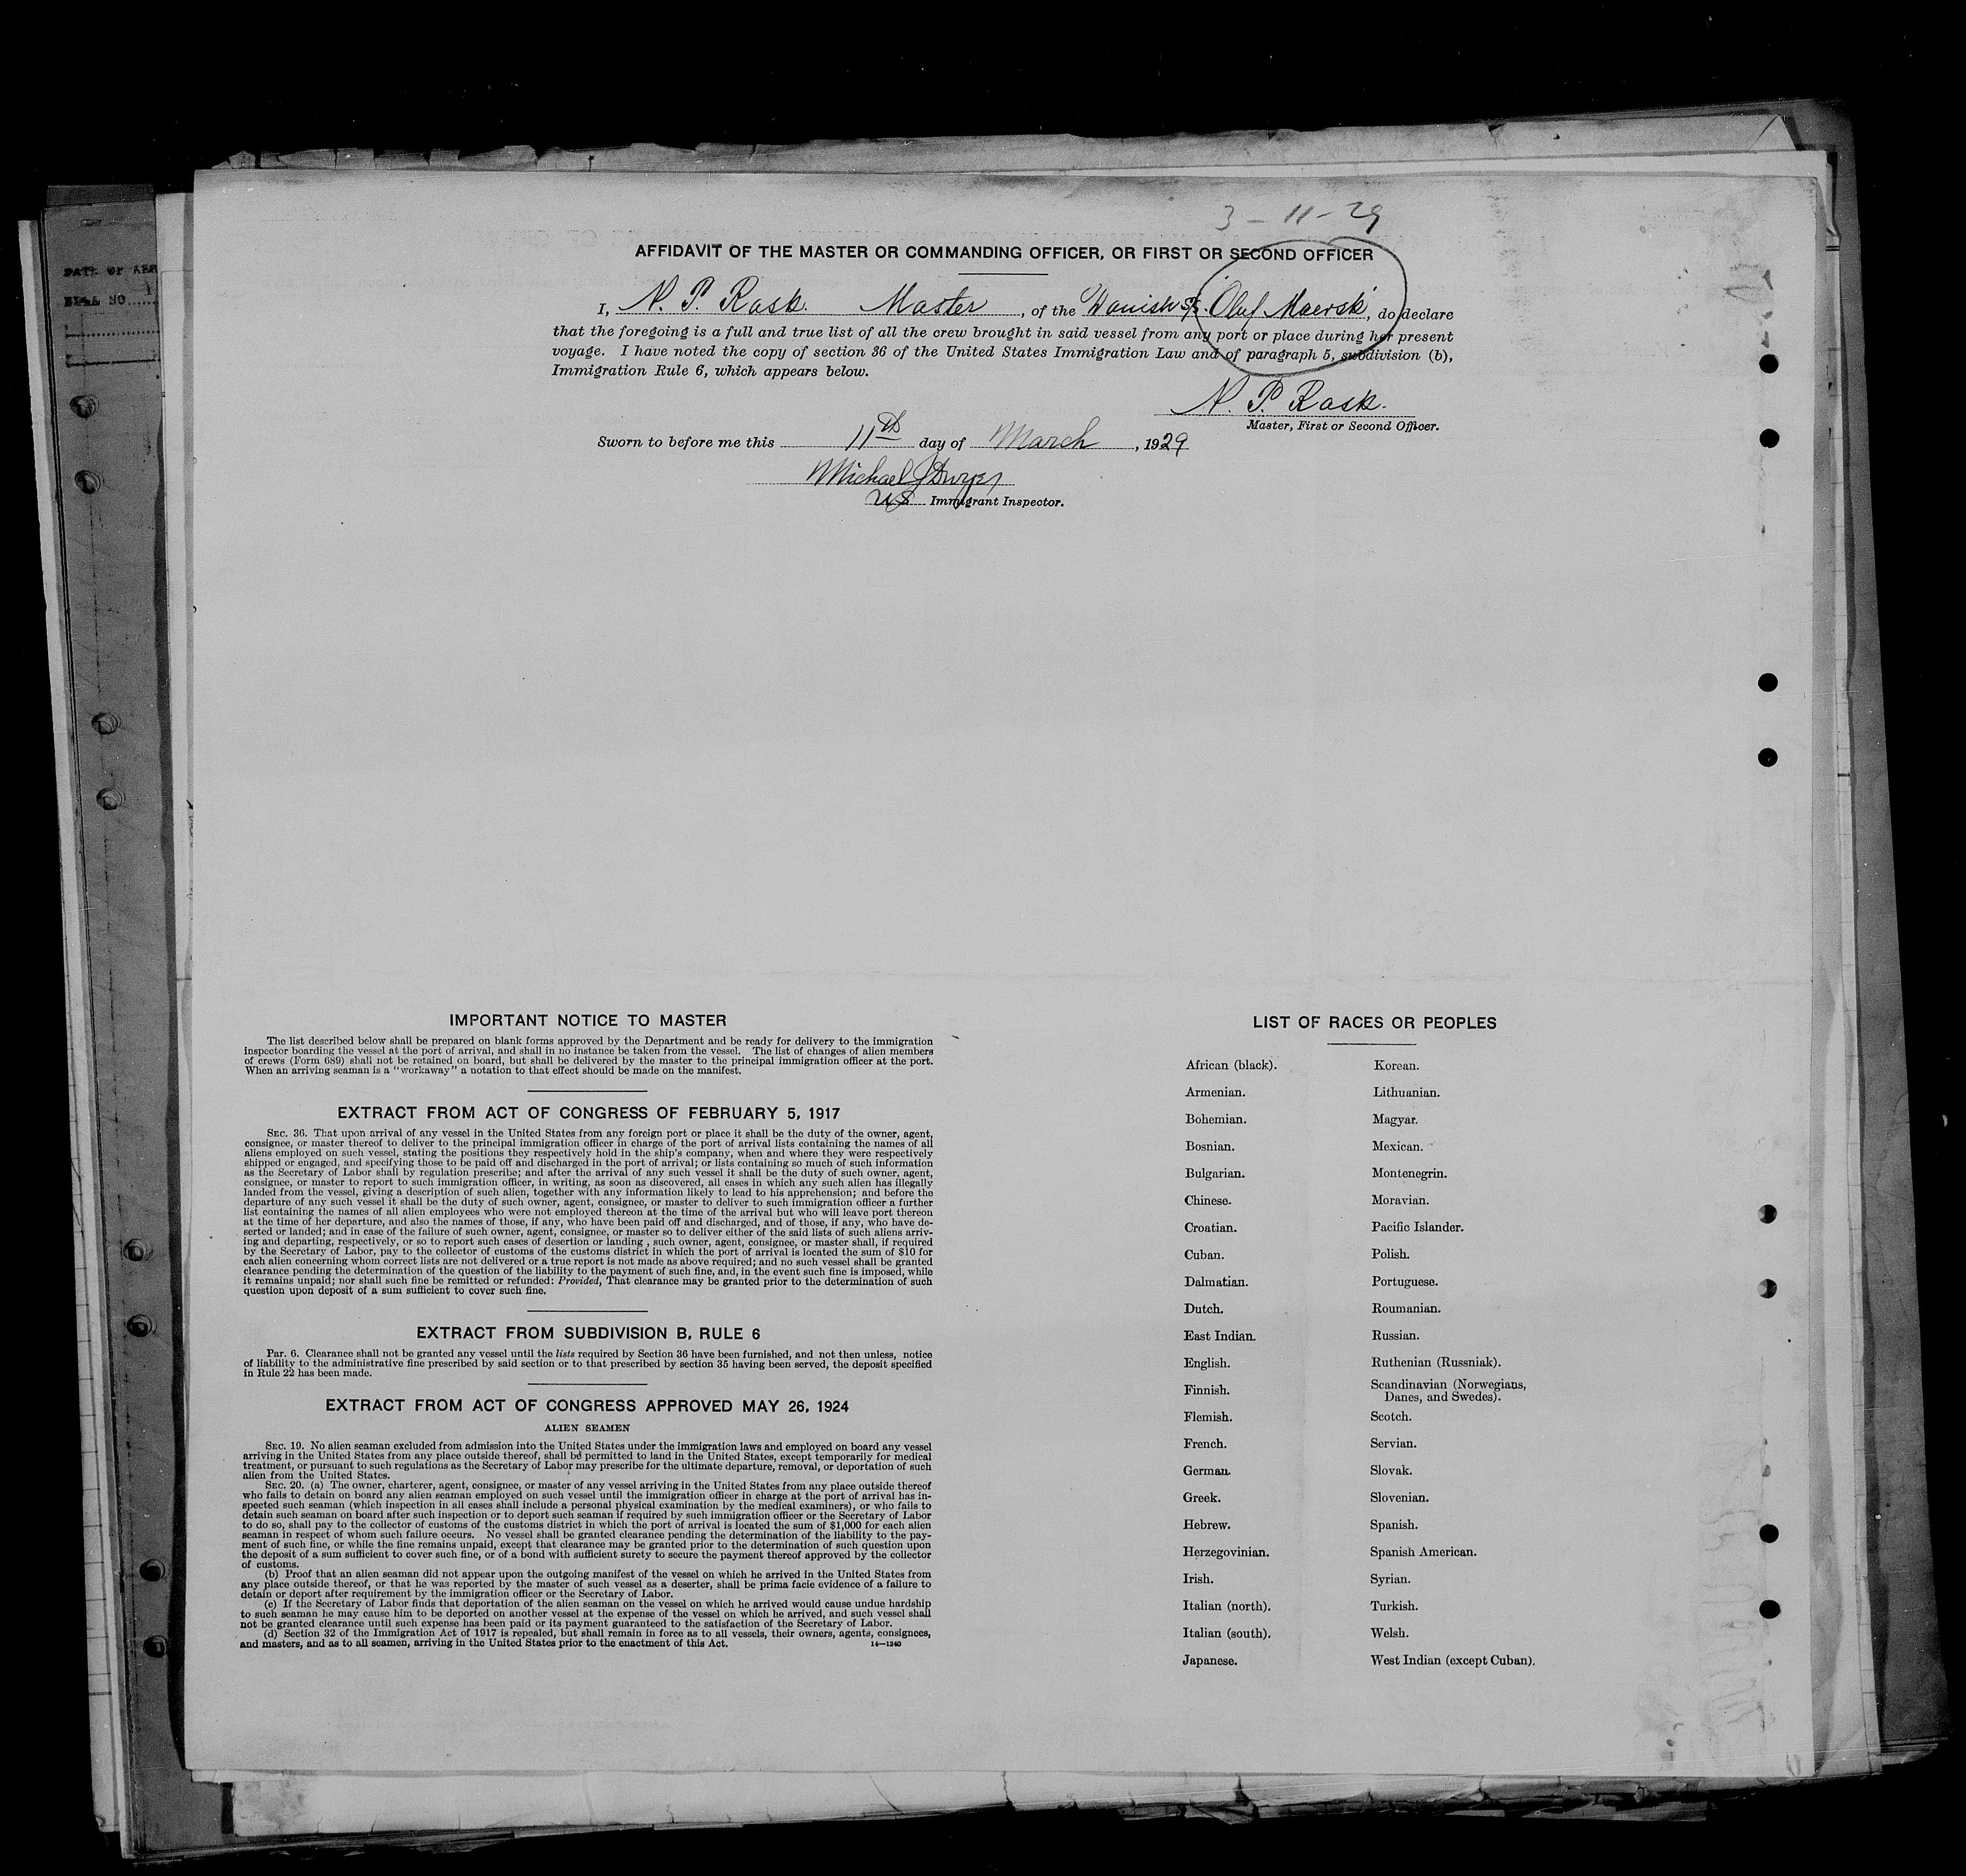 3-11-29
AFFIDAVIT OF THE MASTER OR COMMANDING OFFICER, OR FIRST OR SECOND OFFICER
I, N. P. Rask. Master, of the Danish S/S. Oluf Maersk, do declare
that the foregoing is a full and true list of all the crew brought in said vessel from any port or place during her present
voyage. I have noted the copy of section 36 of the United States Immigration Law and of paragraph 5, subdivision (b),
Immigration Rule 6, which appears below.
N. P. Rask.
Master, First or Second Officer.
Sworn to before me this 11th day of March, 1929
Michael J Dwyer
US Immigrant Inspector.
DATE OF ARR
BILL NO
IMPORTANT NOTICE TO MASTER
The list described below shall be prepared on blank forms approved by the Department and be ready for delivery to the immigration
inspector boarding the vessel at the port of arrival, and shall in no instance be taken from the vessel. The list of changes of alien members
of crews (Form 689) shall not be retained on board, but shall be delivered by the master to the principal immigration officer at the port.
When an arriving seaman is a "workaway" a notation to that effect should be made on the manifest.
EXTRACT FROM ACT OF CONGRESS OF FEBRUARY 5, 1917
SEC. 36. That upon arrival of any vessel in the United States from any foreign port or place it shall be the duty of the owner, agent,
consignee, or master thereof to deliver to the principal immigration officer in charge of the port of arrival lists containing the names of all
aliens employed on such vessel, stating the positions they respectively hold in the ship's company, when and where they were respectively
shipped or engaged, and specifying those to be paid off and discharged in the port of arrival; or lists containing so much of such information
as the Secretary of Labor shall by regulation prescribe; and after the arrival of any such vessel it shall be the duty of such owner, agent,
consignee, or master to report to such immigration officer, in writing, as soon as discovered, all cases in which any such alien has illegally
landed from the vessel, giving a description of such alien, together with any information likely to lead to his apprehension; and before the
departure of any such vessel it shall be the duty of such owner, agent, consignee, or master to deliver to such immigration officer a further
list containing the names of all alien employees who were not employed thereon at the time of the arrival but who will leave port thereon
at the time of her departure, and also the names of those, if any, who have been paid off and discharged, and of those, if any, who have de-
serted or landed; and in case of the failure of such owner, agent, consignee, or master so to deliver either of the said lists of such aliens arriv-
ing and departing, respectively, or so to report such cases of desertion or landing , such owner, agent, consignee, or master shall, if required
by the Secretary of Labor, pay to the collector of customs of the customs district in which the port of arrival is located the sum of $10 for
each alien concerning whom correct lists are not delivered or a true report is not made as above required; and no such vessel shall be granted
clearance pending the determination of the question of the liability to the payment of such fine, and, in the event such fine is imposed, while
it remains unpaid; nor shall such fine be remitted or refunded: Provided, That clearance may be granted prior to the determination of such
question upon deposit of a sum sufficient to cover such fine.
EXTRACT FROM SUBDIVISION B, RULE 6
Par. 6. Clearance shall not be granted any vessel until the lists required by Section 36 have been furnished, and not then unless, notice
of liability to the administrative fine prescribed by said section or to that prescribed by section 35 having been served, the deposit specified
in Rule 22 has been made.
EXTRACT FROM ACT OF CONGRESS APPROVED MAY 26, 1924
ALIEN SEAMEN
SEC. 19. No alien seaman excluded from admission into the United States under the immigration laws and employed on board any vessel
arriving in the United States from any place outside thereof, shall be permitted to land in the United States, except temporarily for medical
treatment, or pursuant to such regulations as the Secretary of Labor may prescribe for the ultimate departure, removal, or deportation of such
alien from the United States.
SEC. 20. (a) The owner, charterer, agent, consignee, or master of any vessel arriving in the United States from any place outside thereof
who fails to detain on board any alien seaman employed on such vessel until the immigration officer in charge at the port of arrival has in-
spected such seaman (which inspection in all cases shall include a personal physical examination by the medical examiners), or who fails to
detain such seaman on board after such inspection or to deport such seaman if required by such immigration officer or the Secretary of Labor
to do so, shall pay to the collector of customs of the customs district in which the port of arrival is located the sum of $1,000 for each alien
seaman in respect of whom such failure occurs. No vessel shall be granted clearance pending the determination of the liability to the pay-
ment of such fine, or while the fine remains unpaid, except that clearance may be granted prior to the determination of such question upon
the deposit of a sum sufficient to cover such fine, or of a bond with sufficient surety to secure the payment thereof approved by the collector
of customs.
(b) Proof that an alien seaman did not appear upon the outgoing manifest of the vessel on which he arrived in the United States from
any place outside thereof, or that he was reported by the master of such vessel as a deserter, shall be prima facie evidence of a failure to
detain or deport after requirement by the immigration officer or the Secretary of Labor.
(c) If the Secretary of Labor finds that deportation of the alien seaman on the vessel on which he arrived would cause undue hardship
to such seaman he may cause him to be deported on another vessel at the expense of the vessel on which he arrived, and such vessel shall
not be granted clearance until such expense has been paid or its payment guaranteed to the satisfaction of the Secretary of Labor.
(d) Section 32 of the Immigration Act of 1917 is repealed, but shall remain in force as to all vessels, their owners, agents, consignees,
and masters, and as to all seamen, arriving in the United States prior to the enactment of this Act. 14—1240
LIST OF RACES OR PEOPLES
African (black). Korean.
Armenian. Lithuanian.
Bohemian. Magyar.
Bosnian. Mexican.
Bulgarian. Montenegrin.
Chinese. Moravian.
Croatian. Pacific Islander.
Cuban. Polish.
Dalmatian. Portuguese.
Dutch. Roumanian.
East Indian. Russian.
English. Ruthenian (Russniak).
Finnish. Scandinavian (Norwegians,
Danes, and Swedes).
Flemish. Scotch.
French. Servian.
German. Slovak.
Greek. Slovenian.
Hebrew. Spanish.
Herzegovinian. Spanish American.
Irish. Syrian.
Italian (north). Turkish.
Italian (south). Welsh.
Japanese. West Indian (except Cuban).